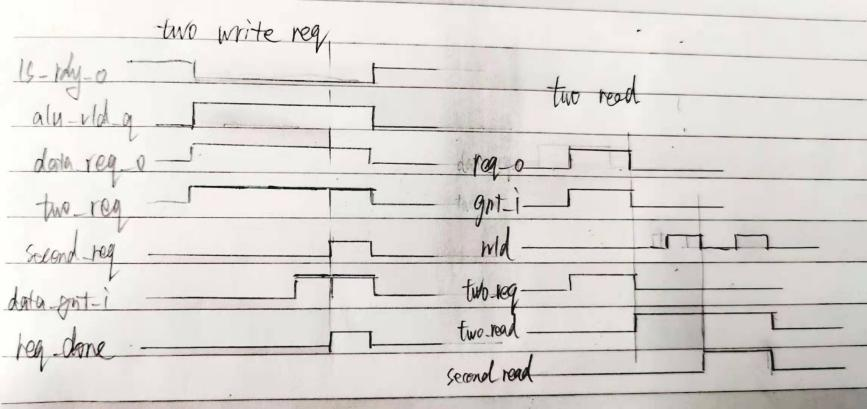 two write req
ls_rdy_o
alu_vld_q
data_req_o
two_req
second_req
data_gnt_i
req_done
two read
req_o
gnt_i
rvld
two_req
two_read
second read